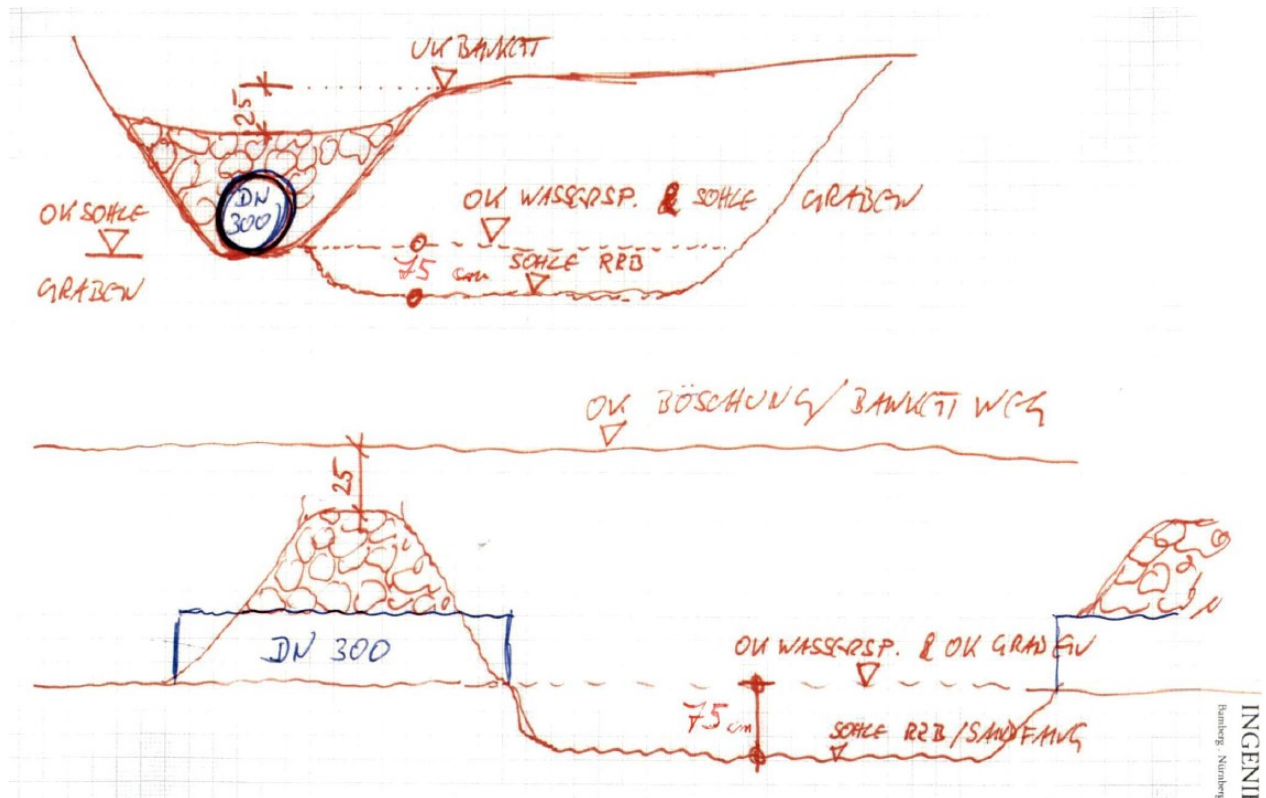 UK BANKETT
25
DN
300
OK SOHLE
GRABEN
OK WASSERSP. & SOHLE GRABEN
75 cm
SOHLE RRB
OK BÖSCHUNG/BANKETT WEG
25
DN 300
OK WASSERSP. & OK GRABEN
75 cm
SOHLE RRB/SANDFANG
INGENIE
Bamberg . Nürnberg